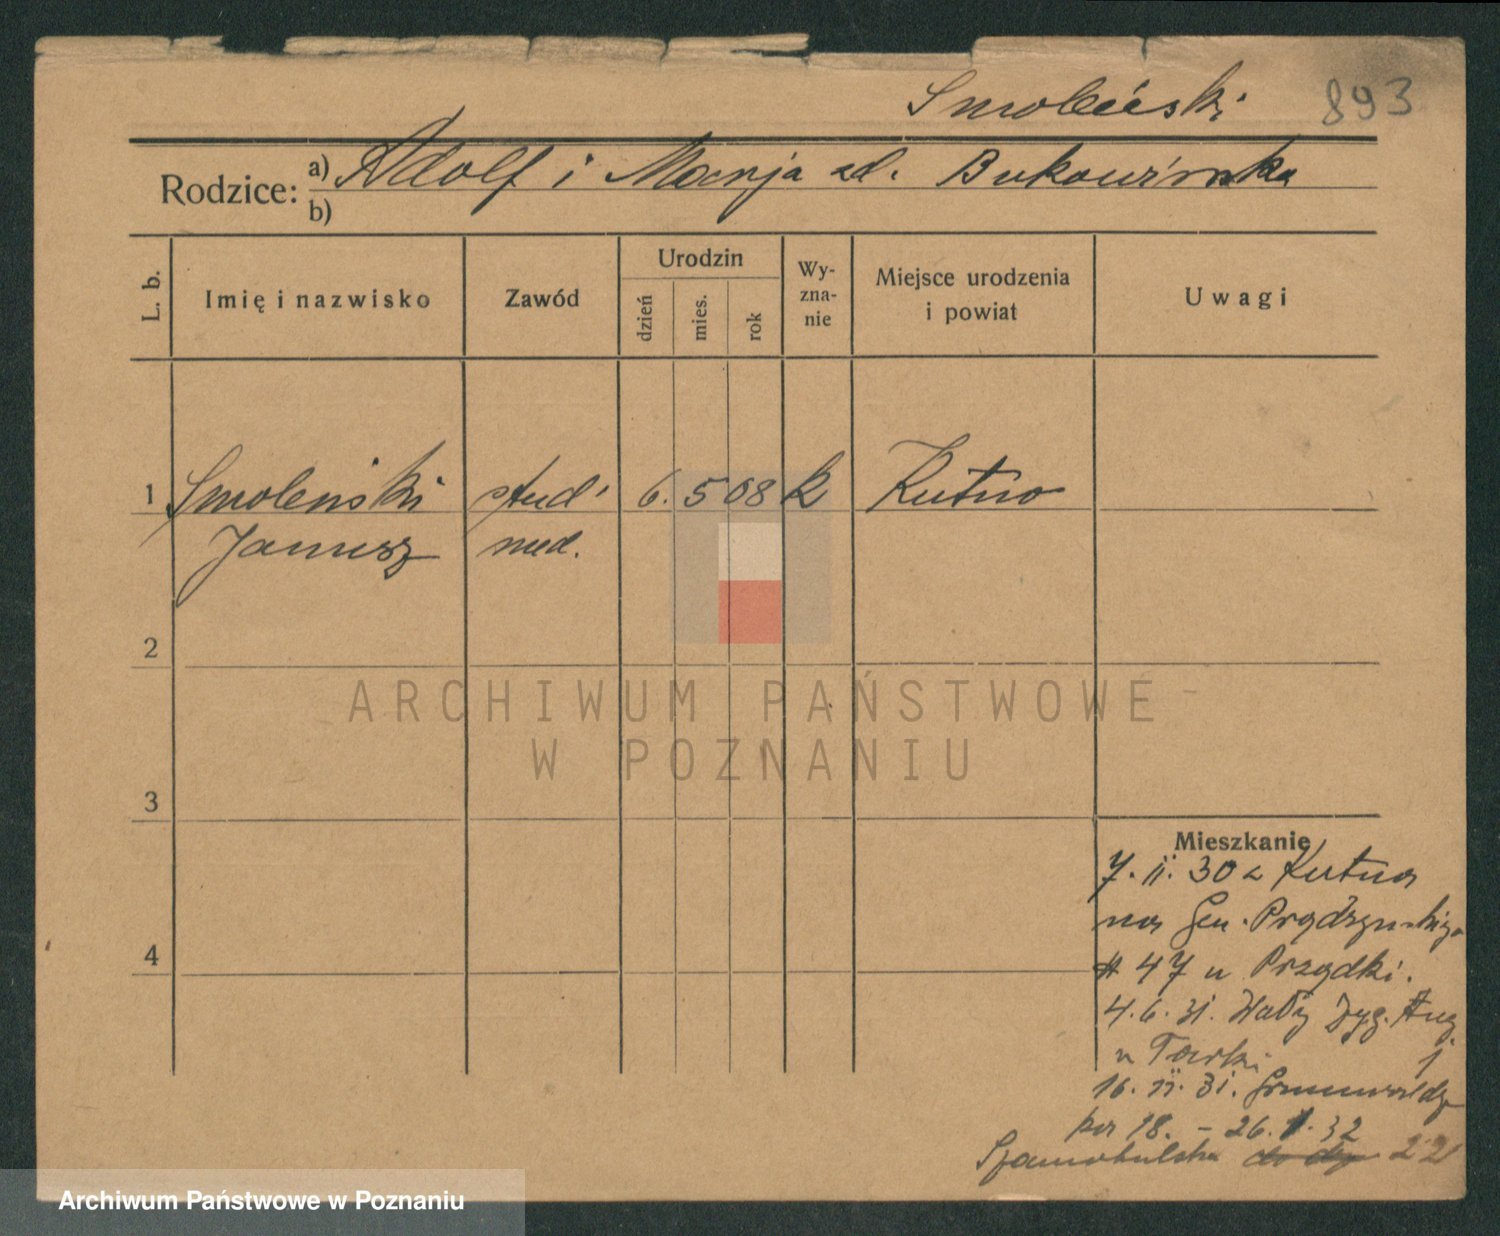 Smoleński 893
Rodzice: a) Adolf i Marja zd. Bukowińska
b)
L. b. Imię i nazwisko Zawód Urodzin dzień mies. rok Wy-zna-nie Miejsce urodzenia i powiat Uwagi
1 Smoleński stud. 6. 5 08 k Kutno
Janusz med.
2
ARCHIWUM PAŃSTWOWE
W POZNANIU
3
Mieszkanie
7. II. 30 z Kutna
na Gen. Prądzyńskiego
# 47 u Prządki.
4
4. 6. 31. Wały Zyg. Aug.
u 1
16. II. 31. Grunwaldz
ka 18. - 26. 1. 32
Szamotulska 22
Archiwum Państwowe w Poznaniu